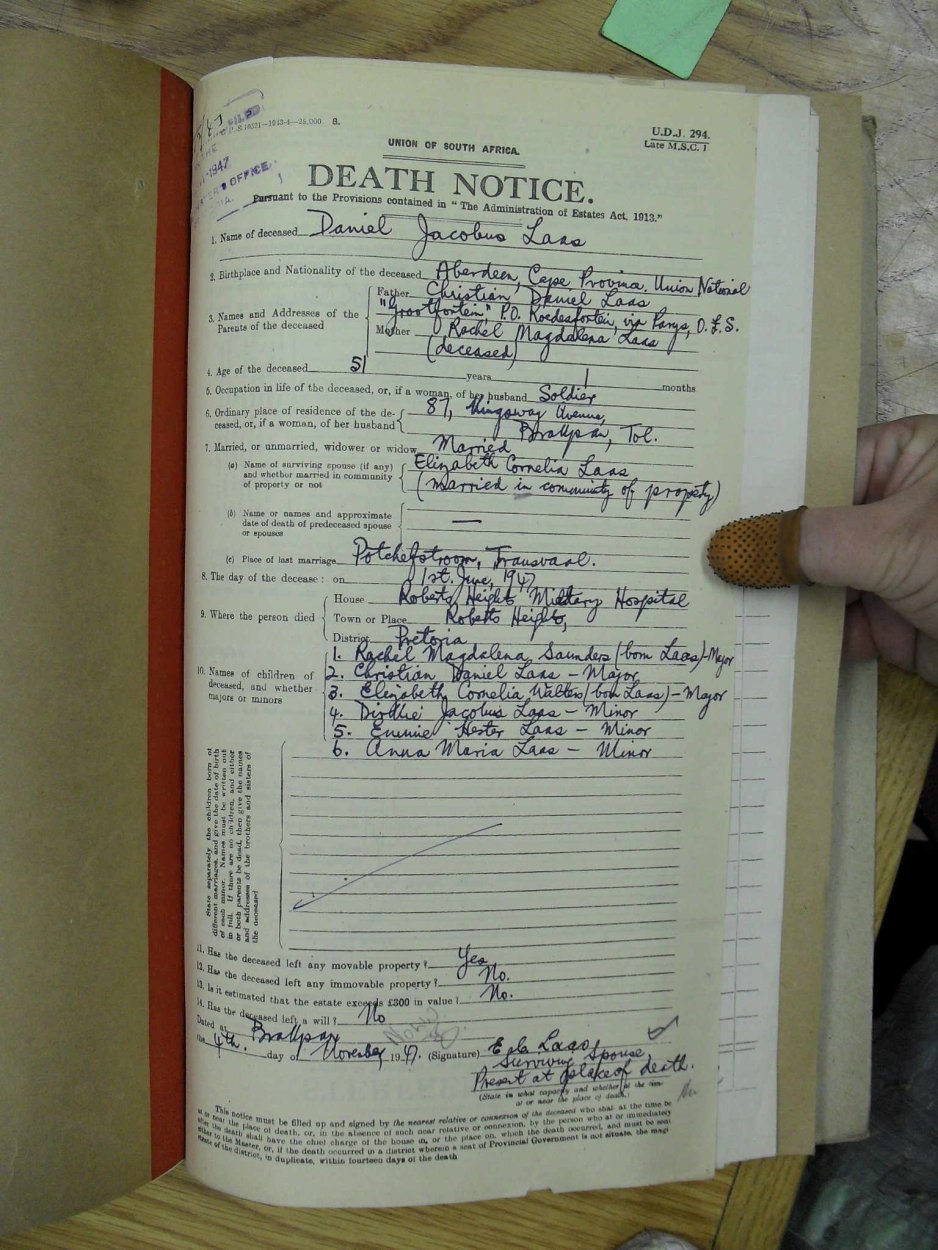 FILED
P.-S.10321—1943-4—25,000. S.
U.D.J. 294.
Late M.S.C. 1
1947
OFFICE
UNION OF SOUTH AFRICA.
DEATH NOTICE.
Pursuant to the Provisions contained in "The Administration of Estates Act, 1913."
1. Name of deceased Daniel Jacobus Laas
2. Birthplace and Nationality of the deceased Aberdeen, Cape Province. Union National
3. Names and Addresses of the Parents of the deceased
Father Christian Daniel Laas
"Grootfontein" P.O. Koedoesfontein, via Parys, O.F.S.
Mother Rachel Magdalena Laas
(deceased)
4. Age of the deceased 51 years 1 months
5. Occupation in life of the deceased, or, if a woman, of her husband Soldier
6. Ordinary place of residence of the deceased, or, if a woman, of her husband 87, Kingsway Avenue,
Brakpan, Tvl.
7. Married, or unmarried, widower or widow Married
(a) Name of surviving spouse (if any) and whether married in community of property or not
Elizabeth Cornelia Laas
(married in community of property)
(b) Name or names and approximate date of death of predeceased spouse or spouses —
(c) Place of last marriage Potchefstroom, Transvaal.
8. The day of the decease: on 1st. June, 1947
9. Where the person died
House Roberts Heights Military Hospital
Town or Place Roberts Heights,
District Pretoria
10. Names of children of deceased, and whether majors or minors
1. Rachel Magdalena Saunders (born Laas) - Major
2. Christian Daniel Laas - Major
3. Elizabeth Cornelia Walters (born Laas) - Major
4. Jacobus Laas - Minor
5. Hester Laas - Minor
6. Anna Maria Laas - Minor
State separately the children born of
different marriages, and give the date of birth
of each minor. Names must be written out
in full. If there are no children, and either
or both parents be dead, then give the names
and addresses of the brothers and sisters of
the deceased
11. Has the deceased left any movable property? Yes
12. Has the deceased left any immovable property? No.
13. Is it estimated that the estate exceeds £300 in value? No.
14. Has the deceased left a will? No
Dated at Brakpan
the 4th. day of November 1947. (Signature) E. C. Laas,
Surviving Spouse,
Present at place of death.
(State in what capacity and whether at the time at or near the place of death.)
This notice must be filled up and signed by the nearest relative or connexion of the deceased who shall at the time be
at or near the place of death, or, in the absence of such near relative or connexion, by the person who at or immediately
after the death shall have the chief charge of the house in, or the place on, which the death occurred, and must be sent
either to the Master, or, if the death occurred in a district wherein a seat of Provincial Government is not situate, the magi
strate of the district, in duplicate, within fourteen days of the death